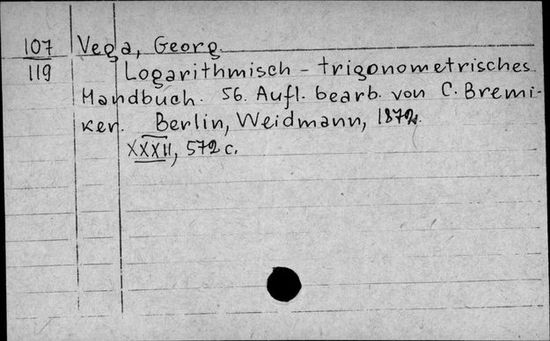 107 Vega, Georg.
119 Logarithmisch - trigonometrisches
Handbuch. 56. Aufl. bearb. von C. Bremi-
ker. Berlin, Weidmann, 1872.
XXXII, 572 c.